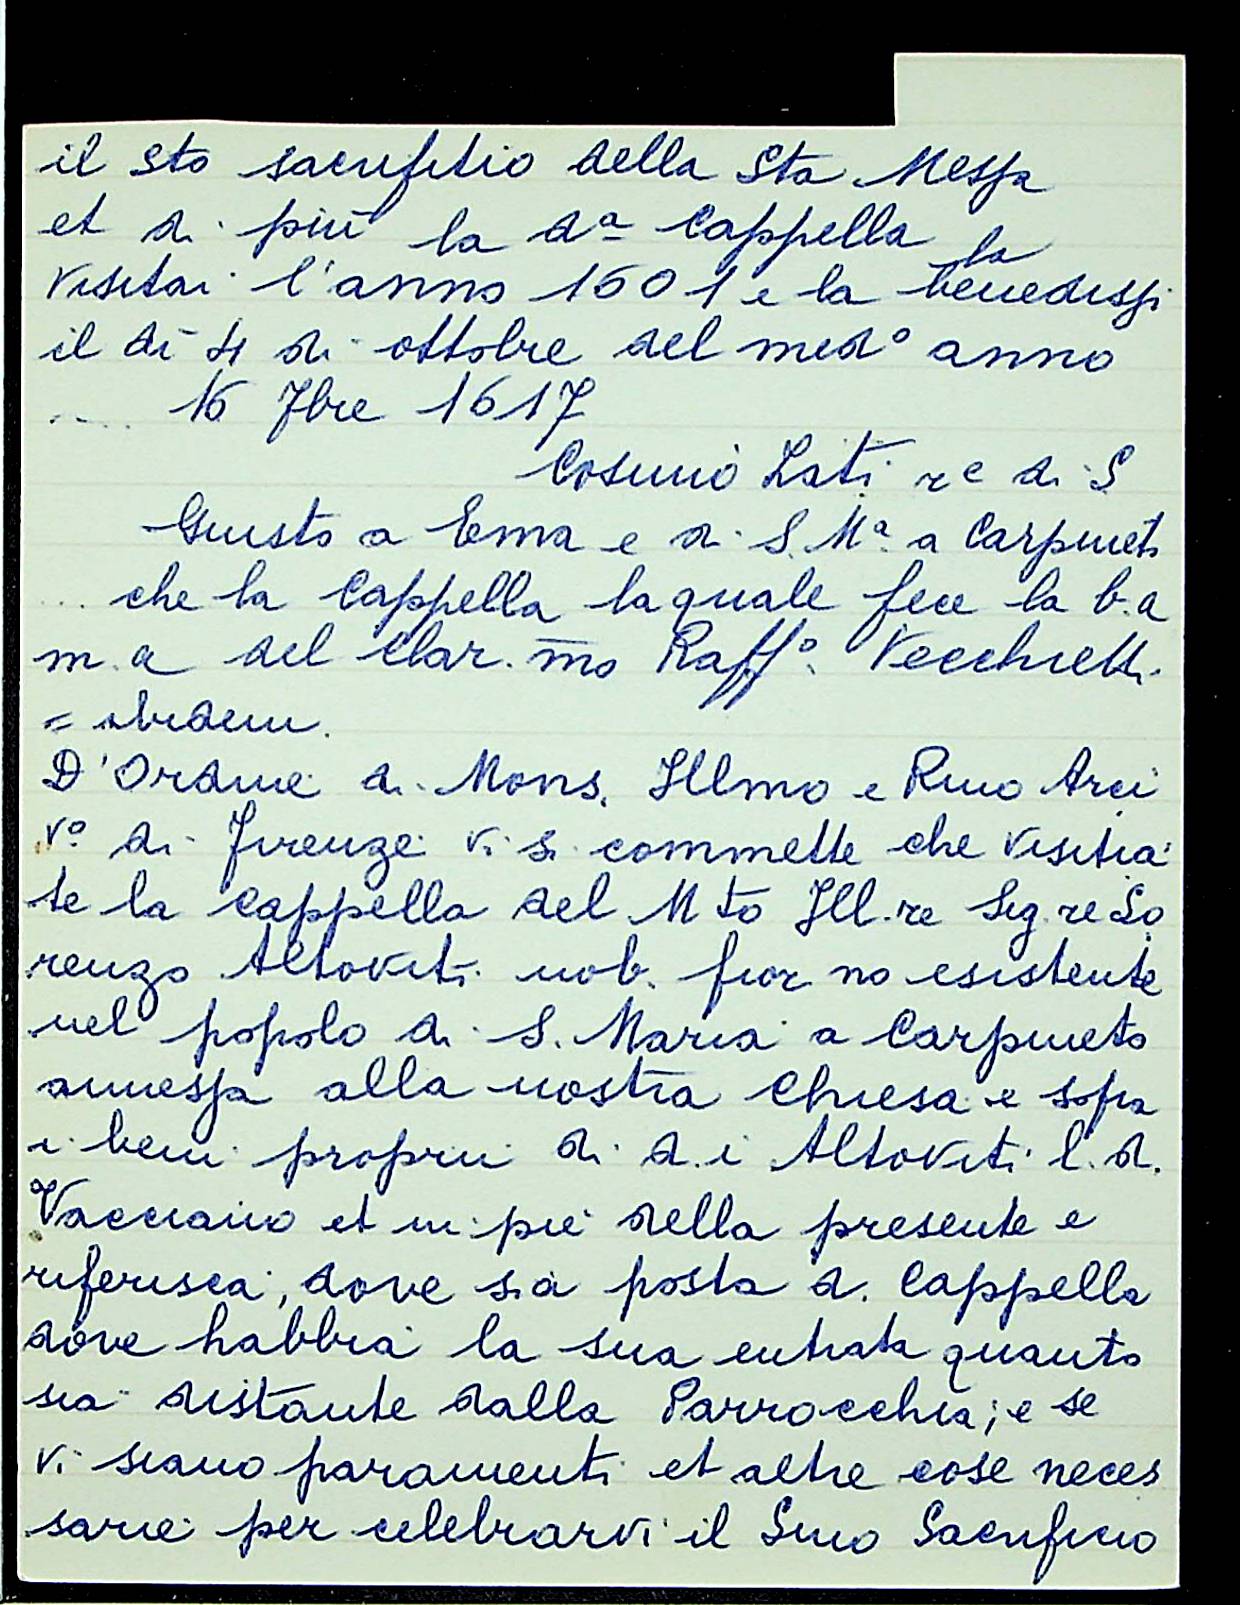 il sto sacrifitio della Sta Messa
et di più la da Cappella la
visitai l'anno 1601 e la benedissi
il dì 4 di ottobre del medo anno
.... 16 7bre 1617
Cosimo Lati re di S
Giusto a Ema e di S. Ma a Carpineto
... che la Cappella la quale fece la b.a
m.a del Clar.mo Raffo. Vecchietti.
= ibidem.
D'Ordine di Mons. Illmo e Rmo Arci
vo di Firenze vi si commette che visitia
te la cappella del Mto Ill.re Sig.re Lo
renzo Altoviti nob. fior no esistente
nel popolo di S. Maria a Carpineto
annessa alla nostra Chiesa e sopra
i beni proprii di d.i Altoviti l.d.
Vacciano et in piè della presente e
riferisca, dove sia posta d. Cappella
dove habbia la sua entrata quanto
sia distante dalla Parrocchia; e se
vi siano paramenti et altre cose neces
sarie per celebrarvi il Smo Sacrificio